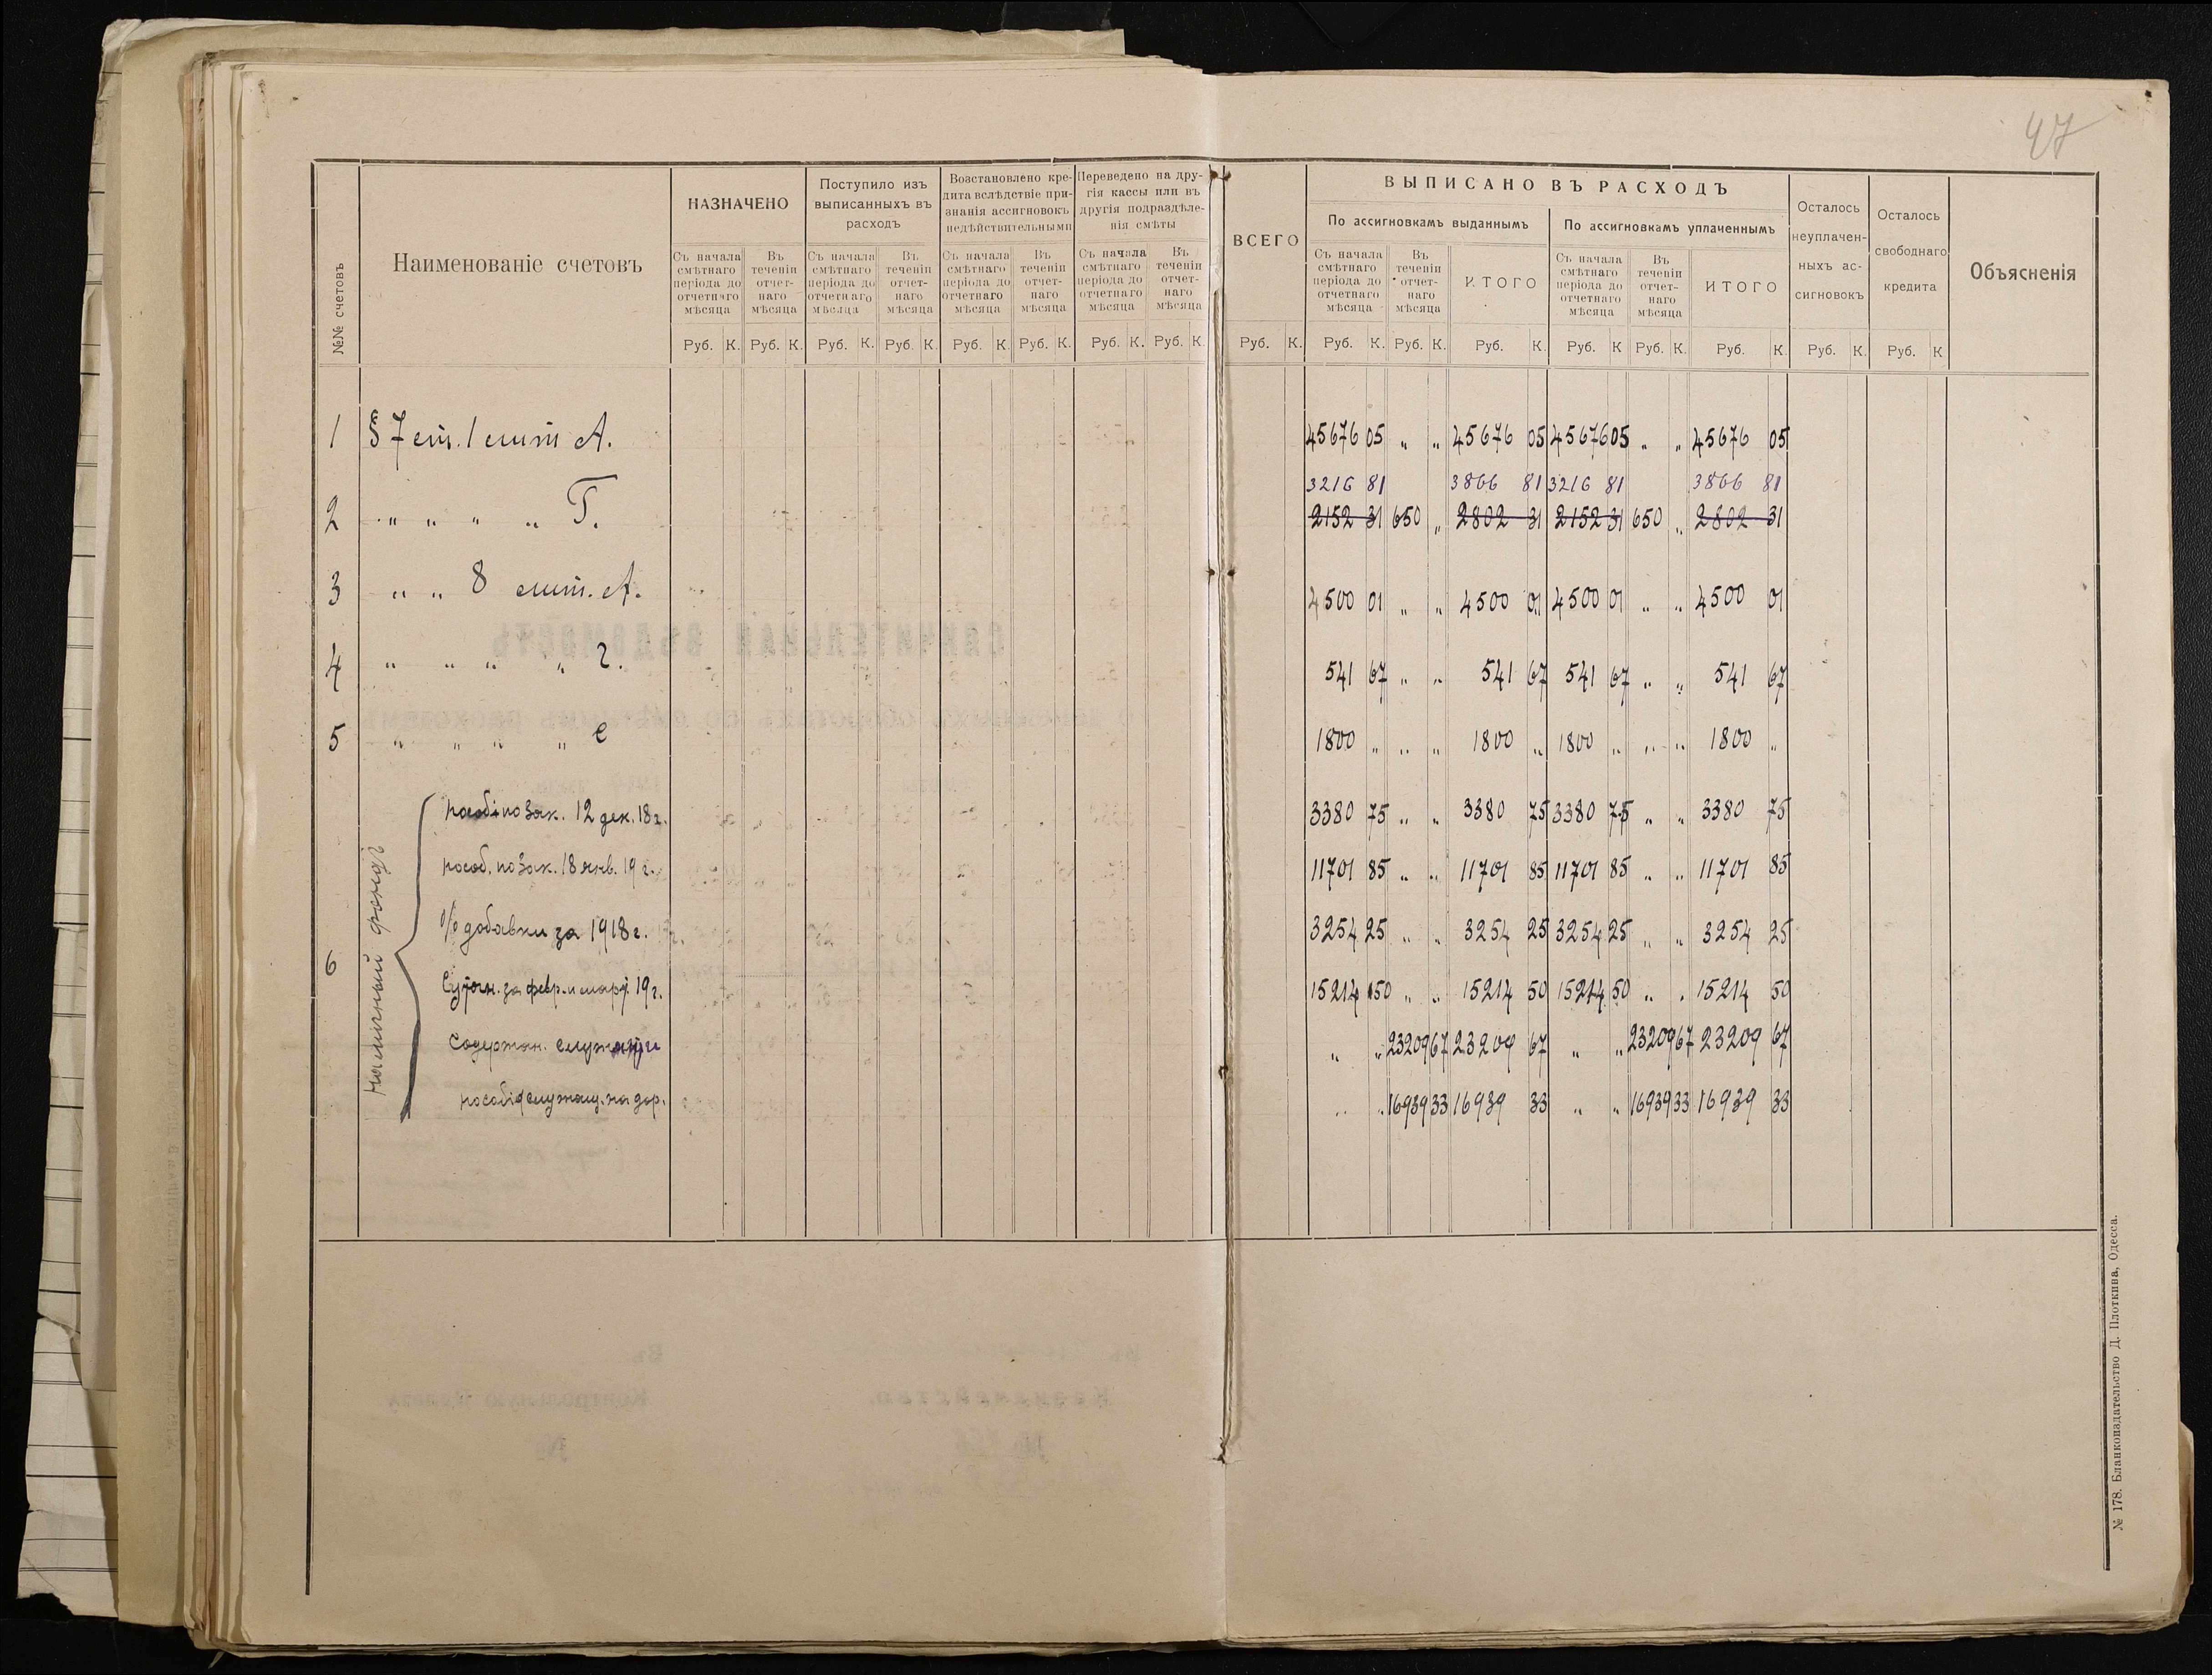 47
№№ счетовъ
Наименованіе счетовъ
НАЗНАЧЕНО
Поступило изъ
выписанныхъ въ
расходъ
Возстановлено кре-
дита вслѣдствіе при-
знанія ассигновокъ
недѣйствительными
Переведено на дру-
гія кассы или въ
другія подраздѣле-
нія смѣты
Съ начала смѣтнаго періода до отчетнаго мѣсяца
Въ теченіи отчет-наго мѣсяца
Съ начала смѣтнаго періода до отчетнаго мѣсяца
Въ теченіи отчет-наго мѣсяца
Съ начала смѣтнаго періода до отчетнаго мѣсяца
Въ теченіи отчет-наго мѣсяца
Съ начала смѣтнаго періода до отчетнаго мѣсяца
Въ теченіи отчет-наго мѣсяца
Руб. К. Руб. К. Руб. К. Руб. К. Руб. К. Руб. К. Руб. К. Руб. К.
ВСЕГО
ВЫПИСАНО ВЪ РАСХОДЪ
По ассигновкамъ выданнымъ
По ассигновкамъ уплаченнымъ
Съ начала смѣтнаго періода до отчетнаго мѣсяца
Въ теченіи отчет-наго мѣсяца
ИТОГО
Съ начала смѣтнаго періода до отчетнаго мѣсяца
Въ теченіи отчет-наго мѣсяца
ИТОГО
Осталось
неуплачен-
ныхъ ас-
сигновокъ
Осталось
свободнаго
кредита
Объясненія
Руб. К. Руб. К. Руб. К. Руб. К. Руб. К Руб. К. Руб. К. Руб. К. Руб. К
1 § 7 ст. 1 лит А. 45676 05 „ „ 45676 05 45676 05 „ „ 45676 05
3216 81 3866 81 3216 81 3866 81
2 „ „ „ „ Г. 2152 31 650 „ 2802 31 2152 31 650 „ 2802 31
3 „ „ 8 лит. А. 4500 01 „ „ 4500 01 4500 01 „ „ 4500 01
4 „ „ „ „ г. 541 67 „ „ 541 67 541 67 „ „ 541 67
5 „ „ „ „ е 1800 „ „ „ 1800 „ 1800 „ „ „ 1800 „
6 наличный фондъ
пособ по зак. 12 дек. 18 г. 3380 75 „ „ 3380 75 3380 75 „ „ 3380 75
пособ. по зак. 18 янв. 19 г. 11701 85 „ „ 11701 85 11701 85 „ „ 11701 85
% добавки за 1918 г. 3254 25 „ „ 3254 25 3254 25 „ „ 3254 25
Суточн. за февр. и март 19 г. 15214 50 „ „ 15214 50 15214 50 „ „ 15214 50
Содержан. служащи „ „ 23209 67 23209 67 „ „ 23209 67 23209 67
пособія служащ. на дор. „ „ 16939 33 16939 33 „ „ 16939 33 16939 33
№ 178. Бланкоиздательство Д. Плоткина, Одесса.